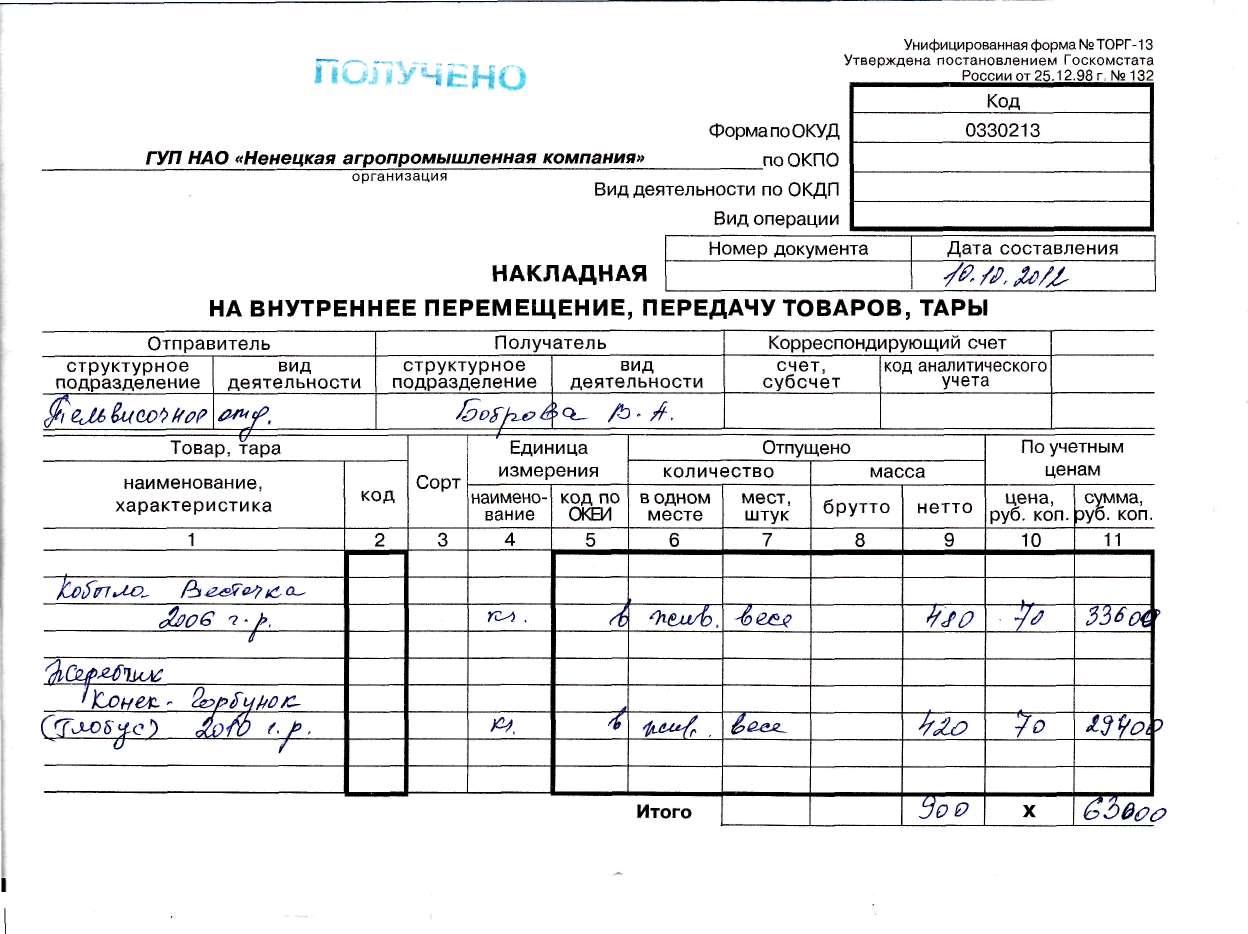 ПОЛУЧЕНО
Унифицированная форма № ТОРГ-13
Утверждена постановлением Госкомстата
России от 25.12.98 г. № 132
Код
Форма по ОКУД 0330213
ГУП НАО «Ненецкая агропромышленная компания» по ОКПО
организация
Вид деятельности по ОКДП
Вид операции
Номер документа Дата составления
НАКЛАДНАЯ 10.10.2012
НА ВНУТРЕННЕЕ ПЕРЕМЕЩЕНИЕ, ПЕРЕДАЧУ ТОВАРОВ, ТАРЫ
Отправитель Получатель Корреспондирующий счет
структурное подразделение вид деятельности структурное подразделение вид деятельности счет, субсчет код аналитического учета
Тельвисочное отд. Боброва В. А.
Товар, тара Сорт Единица измерения Отпущено По учетным ценам
наименование, характеристика код наимено-вание код по ОКЕИ количество масса цена, руб. коп. сумма, руб. коп.
в одном месте мест, штук брутто нетто
1 2 3 4 5 6 7 8 9 10 11
Кобыла Весточка
2006 г.р. кг. в жив. весе 480 70 33600
Жеребчик
Конек-Горбунок
(Глобус) 2010 г.р. кг. в жив. весе 420 70 29400
Итого 900 Х 63000